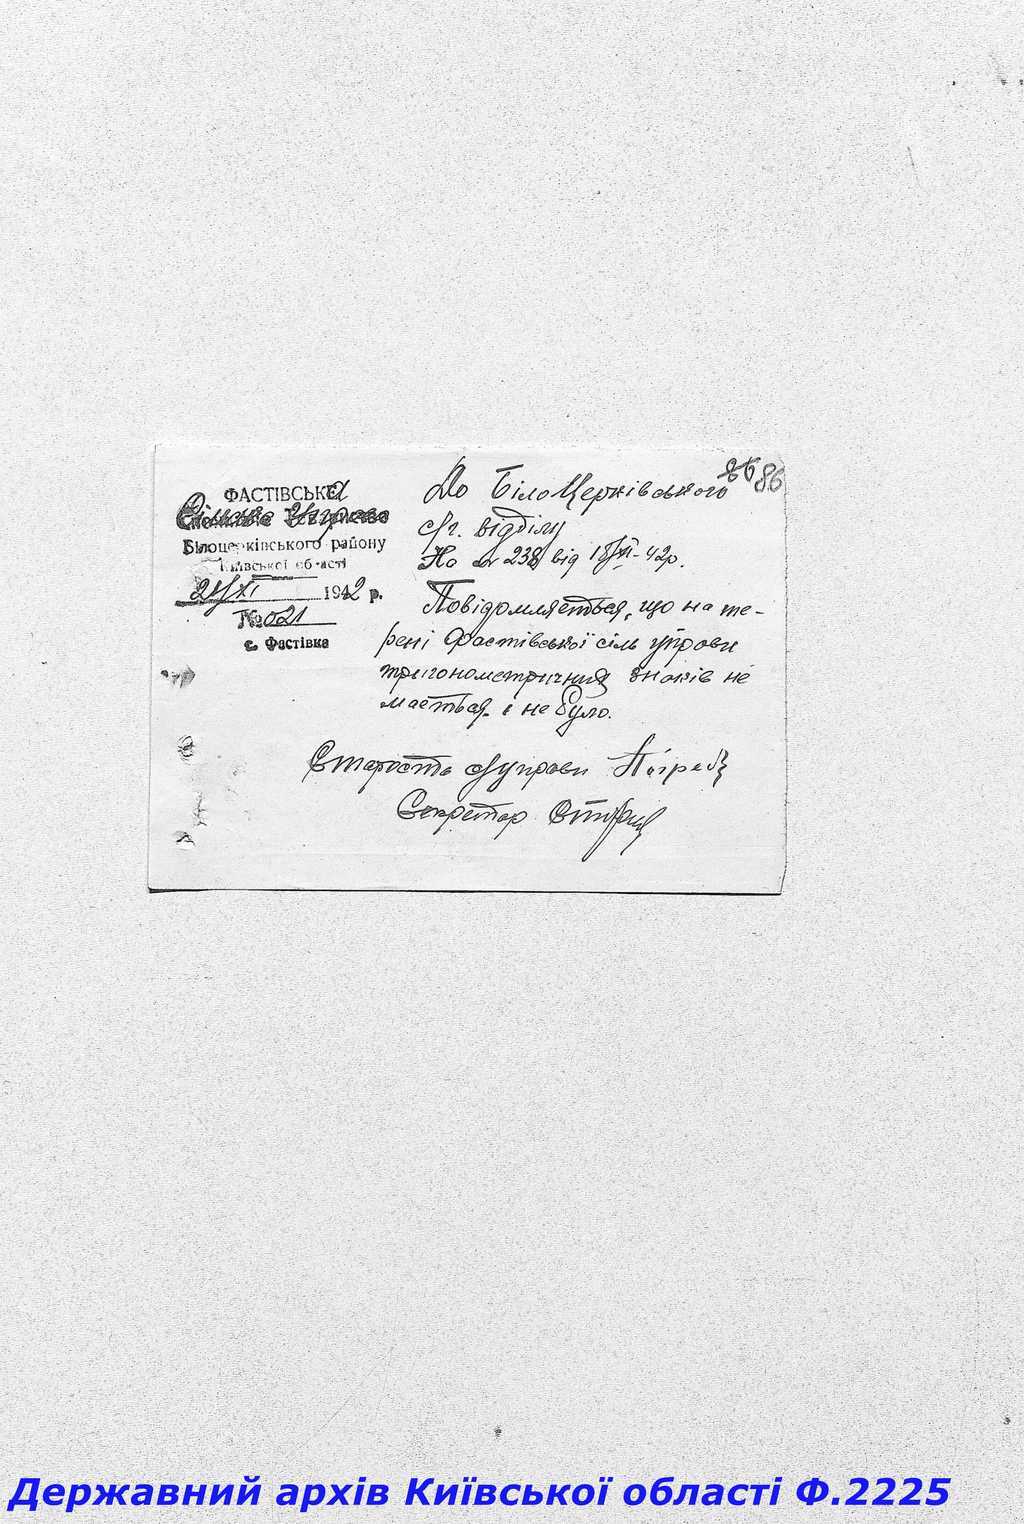 86 86
ФАСТІВСЬКА
Сільська Управа
Білоцерківського району
Київської області
21/XI 1942 р.
№ 021
с. Фастівка
До Білоцерківського
с/г. відділу
На № 238 від 18/XI-42р.
Повідомляється, що на те-
рені Фастівської сіль управи
тригонометричних знаків не
мається і не було.
Староста с/управи
Секретар
Державний архів Київської області Ф.2225